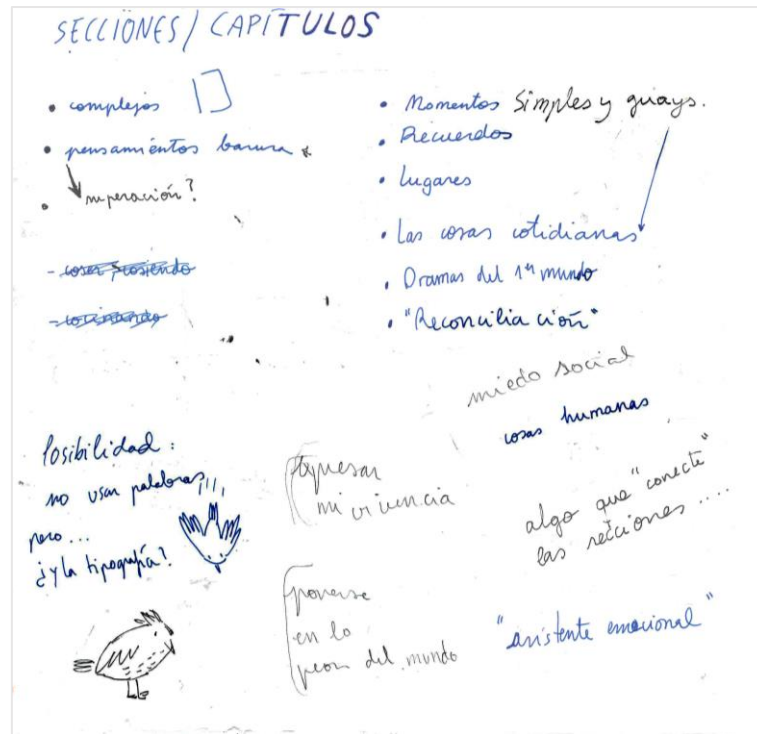 SECCIONES / CAPÍTULOS
• complejos
• pensamientos basura *
• superación?
- coser, cosiendo
- cocinando
• Momentos simples y guays.
• Recuerdos
• Lugares
• Las cosas cotidianas
• Dramas del 1er mundo
• "Reconciliación"
miedo social
cosas humanas
Posibilidad:
no usar palabras,!!!,
pero...
¿y la tipografía?
Expresar
mi vivencia
algo que "conecte"
las secciones....
ponerse
en lo
peor del mundo
"asistente emocional"